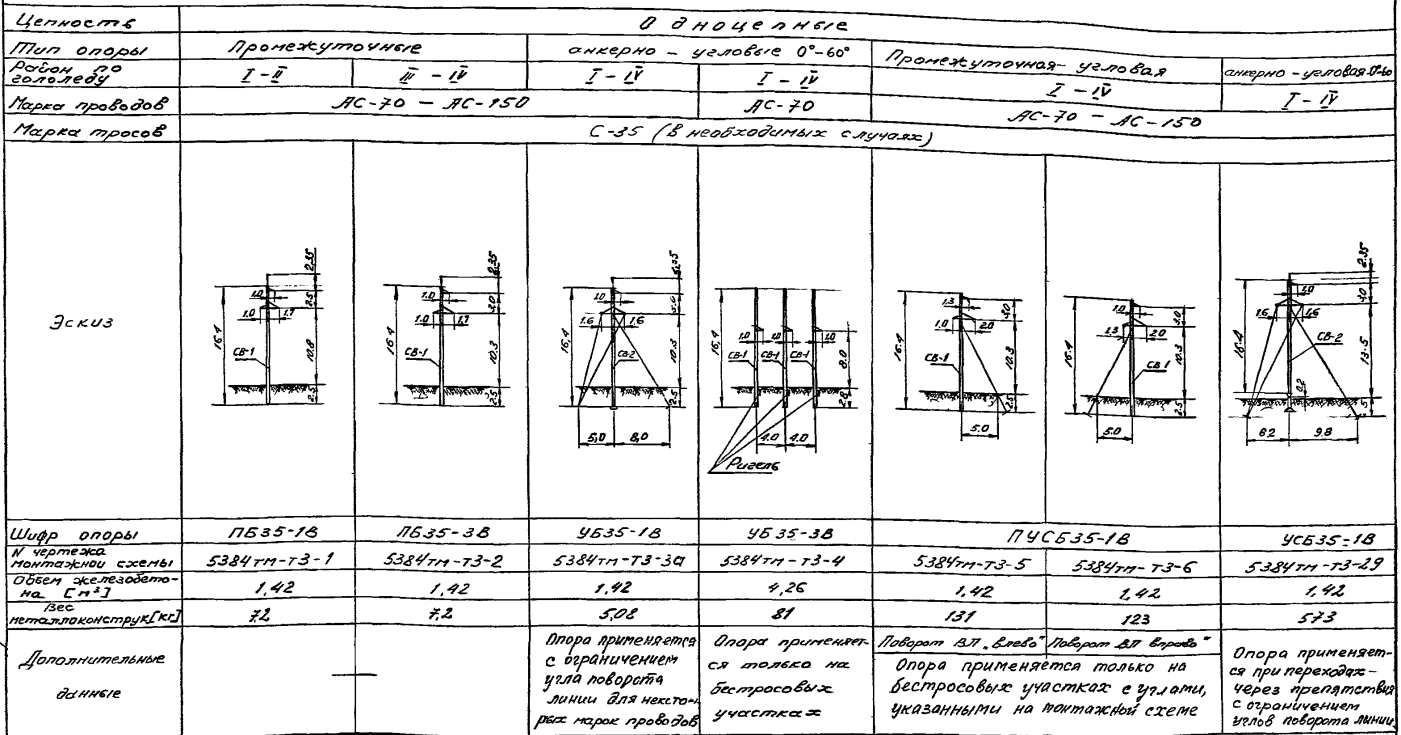 Цепность Одноцепные
Тип опоры Промежуточные анкерно - угловые 0°-60° Промежуточная- угловая анкерно - угловая 0°-60
Район по
гололеду I - II III - IV I - IV I - IV I - IV I - IV
Марка проводов АС-70 - АС-150 АС-70 АС-70 - АС-150
Марка тросов С-35 (В необходимых случаях)
Эскиз
16.4 1.0 1.0 1.7 2.35 2.5 10.8 2.5 СВ-1
16.4 1.0 1.0 1.7 2.35 3.0 10.3 2.5 СВ-1
16,4 1.0 1.6 1.6 3.0 10.3 2.5 СВ-2 5,0 8,0
16,4 1.0 1.0 1.0 СВ-1 СВ-1 СВ-1 8.0 4.0 4.0 Ригель
16.4 1.3 1.0 2.0 3.0 10.3 2.5 СВ-1 5.0
16.4 1.0 1.3 2.0 3.0 10.3 2.5 СВ-1 5.0
16.4 1.0 1.6 1.6 2.35 3.0 13.5 2.5 0.2 СВ-2 6.2 9.8
Шифр опоры ПБ35-1В ПБ35-3В УБ35-1В УБ35-3В ПУСБ35-1В УСБ35-1В
N чертежа
монтажной схемы 5384тм-т3-1 5384тм-т3-2 5384тм-т3-3а 5384тм-т3-4 5384тм-т3-5 5384тм-т3-6 5384тм-т3-29
Объем железобето-
на [м³] 1,42 1,42 1,42 4,26 1.42 1.42 1.42
Вес
металлоконструк[кг] 72 7,2 5,08 81 131 123 573
Дополнительные
данные
Опора применяется
с ограничением
угла поворота
линии для некото-
рых марок проводов
Опора применяет-
ся только на
бестросовых
участках
Поворот ВЛ „Влево" Поворот ВЛ вправо"
Опора применяется только на
бестросовых участках с углами,
указанными на монтажной схеме
Опора применяет-
ся при переходах-
через препятствия
с ограничением
углов поворота линии